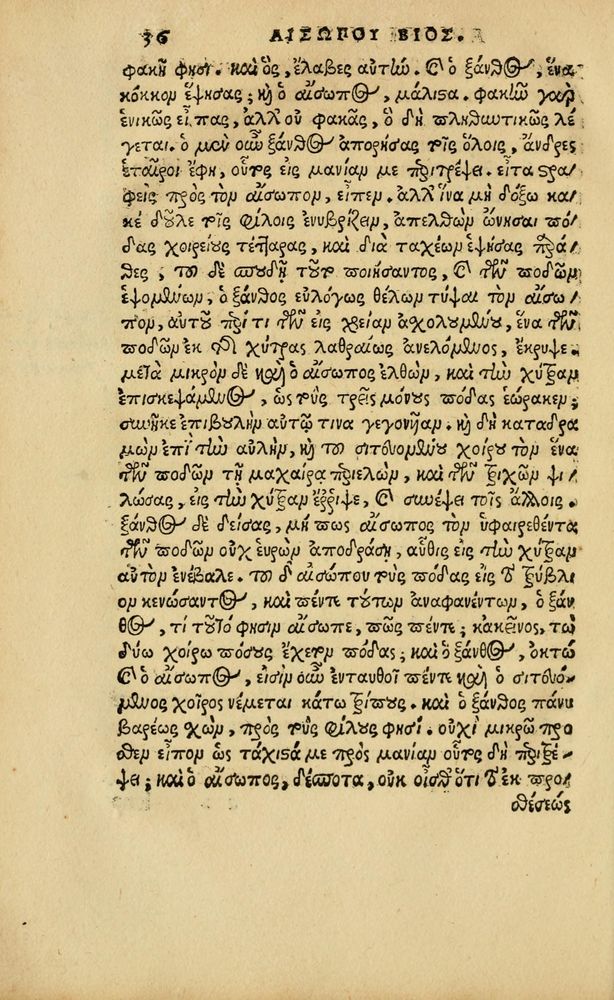 36 ΑΙΣΩΠΟΥ ΒΙΟΣ.
φακῆν φησι. καὶ ὃς, ἔλαβες αὐτήν. καὶ ὁ ξάνθος, ἕνα
κόκκον ἕψησας; κὴ ὁ αἴσωπος, μάλιστα. φακὴν γὰρ
ἑνικῶς εἶπας, ἀλλ' οὐ φακᾶς, ὃ δὴ πληθωτικῶς λέ
γεται. ὁ μὲν οὖν ξάνθος ἀπορήσας τοῖς ὅλοις, ἄνδρες
ἑταῖροι ἔφη, οὗτος εἰς μανίαν με περιτρέψει. εἶτα στρα
φεὶς πρὸς τὸν αἴσωπον, εἶπεν. ἀλλ' ἵνα μὴ δόξω κα/
κὲ δοῦλε τοῖς φίλοις ἐνυβρίζειν, ἀπελθὼν ὤνησαι πό/
δας χοιρείους τέτταρας, καὶ διὰ ταχέων ἑψήσας παρά/
θες; τοῦ δὲ σπουδῇ τοῦτο ποιήσαντος, καὶ τῶν ποδῶν
ἑψομένων, ὁ ξάνθος εὐλόγως θέλων τύψαι τὸν αἴσω/
πον, αὐτοῦ περί τι τῶν εἰς χρείαν ἀχολουμένου, ἕνα τῶν
ποδῶν ἐκ τῆς χύτρας λαθραίως ἀνελόμενος, ἔκρυψε.
μετὰ μικρὸν δὲ καὶ ὁ αἴσωπος ἐλθὼν, καὶ τὴν χύτραν
ἐπισκεψάμενος, ὡς τοὺς τρεῖς μόνους πόδας ἑώρακεν;
συνῆκε ἐπιβουλὴν αὐτῷ τινα γεγονῆαν. κὴ δὴ καταδρα
μὼν ἐπὶ τὴν αὐλὴν, κὴ τοῦ σιτευομένου χοίρου τὸν ἕνα
τῶν ποδῶν τῇ μαχαίρᾳ περιελὼν, καὶ τῶν τριχῶν ψι/
λώσας, εἰς τὴν χύτραν ἔρριψε, καὶ συνέψει τοῖς ἄλλοις.
ξάνθος δὲ δείσας, μή πως αἴσωπος τὸν ὑφαιρεθέντα
τῶν ποδῶν οὐχ εὑρὼν ἀποδράσῃ, αὖθις εἰς τὴν χύτραν
αὐτὸν ἐνέβαλε. τοῦ δ' αἰσώπου τοὺς πόδας εἰς τὸ τρύβλι
ον κενώσαντος, καὶ πέντε τούτων ἀναφανέντων, ὁ ξάν
θος, τί τοῦτό φησιν αἴσωπε, πῶς πέντε; κἀκεῖνος, τὼ
δύω χοίρω πόσους ἔχετον πόδας; καὶ ὁ ξάνθος, ὀκτώ
καὶ ὁ αἴσωπος, εἰσὶν οὖν ἐνταυθοῖ πέντε καὶ ὁ σιτευό/
μενος χοῖρος νέμεται κάτω τρίπους. καὶ ὁ ξάνθος πάνυ
βαρέως σχὼν, πρὸς τοὺς φίλους φησί. οὐχὶ μικρῷ πρό
σθεν εἶπον ὡς τάχιστά με πρὸς μανίαν οὗτος δὴ περιτρέ-
ψει; καὶ ὁ αἴσωπος, δέσποτα, οὐκ οἶσθ' ὅτι τὸ ἐκ προ/
σθέσεώς